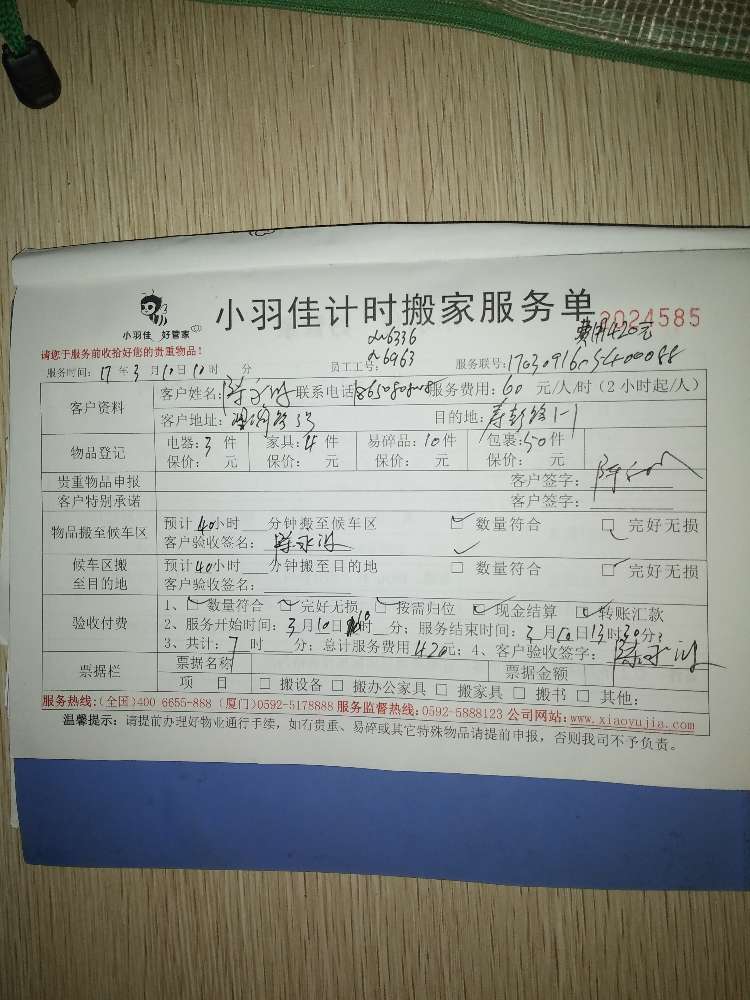 小羽佳 好管家
小羽佳计时搬家服务单
2024585
费用420元
请您于服务前收拾好您的贵重物品!
6336
6963
服务时间: 17 年 3 月 10 日 10 时 分 员工工号: 服务联号:
客户资料
客户姓名: 联系电话: 服务费用: 60 元/人/时(2小时起/人)
客户地址: 目的地:
物品登记
电器: 3 件 家具: 4 件 易碎品: 10 件 包裹: 50 件
保价: 元 保价: 元 保价: 元 保价: 元
贵重物品申报 客户签字:
客户特别承诺 客户签字:
物品搬至候车区
预计 40 小时 分钟搬至候车区 数量符合 完好无损
客户验收签名:
候车区搬至目的地
预计 40 小时 分钟搬至目的地 数量符合 完好无损
客户验收签名:
验收付费
1、 数量符合 完好无损 按需归位 现金结算 转账汇款
2、服务开始时间: 3 月 10 日 时 分; 服务结束时间: 3 月 10 日 13 时 30 分;
3、共计: 7 时 分; 总计服务费用 420 元; 4、客户验收签字:
票据栏
票据名称 票据金额
项 目 □ 搬设备 □ 搬办公家具 □ 搬家具 □ 搬书 □ 其他:
服务热线:(全国)400 6655-888 (厦门)0592-5178888 服务监督热线:0592-5888123 公司网站:www.xiaoyujia.com
温馨提示: 请提前办理好物业通行手续, 如有贵重、易碎或其它特殊物品请提前申报, 否则我司不予负责。